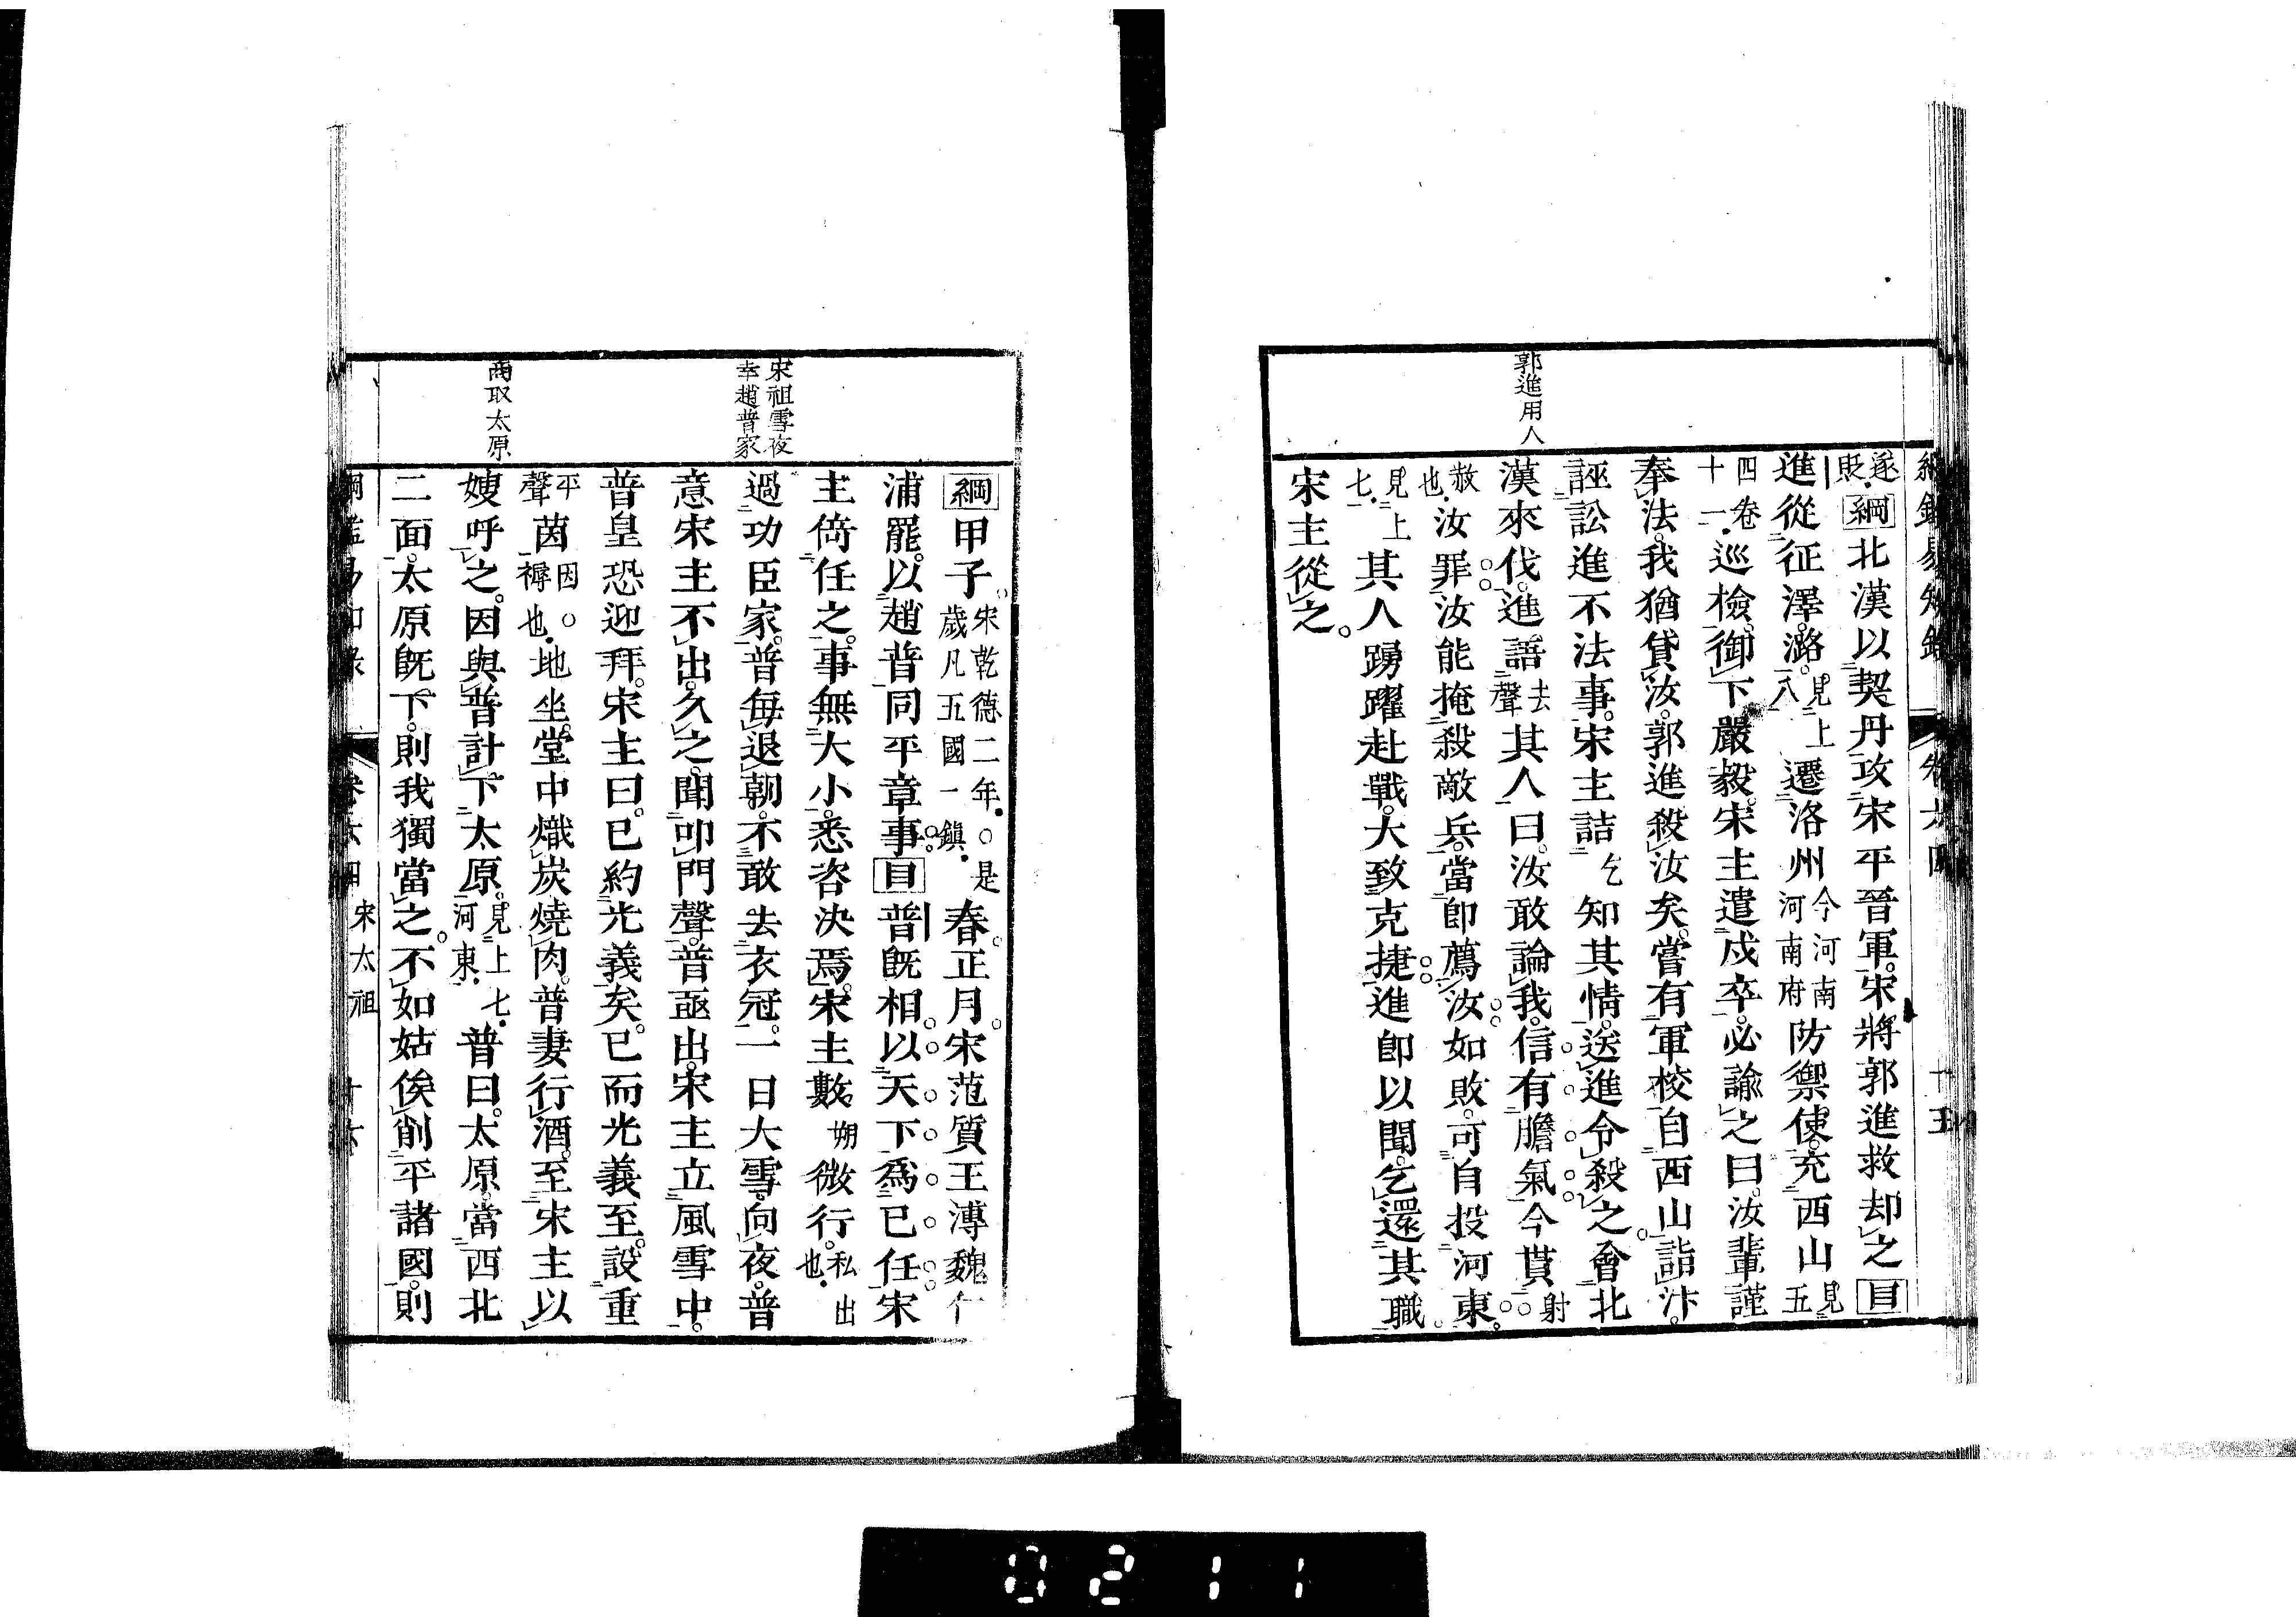 綱鑑易知錄 卷六四 十五
郭進用人
遂貶綱北漢以契丹攻宋平晉軍宋將郭進救却之目
進從征澤潞見上八遷洛州今河南河南府防禦使充西山見五
四卷十一巡檢御下嚴毅宋主遣戍卒必諭之曰汝輩謹
奉法我猶貸汝郭進殺汝矣嘗有軍校自西山詣汴
誣訟進不法事宋主詰乞知其情送進令殺之會北
漢來伐進語去聲其人曰汝敢論我信有膽氣今貰射
赦也汝罪汝能掩殺敵兵當卽薦汝如敗可自投河東
見上七其人踴躍赴戰大致克捷進卽以聞乞還其職
宋主從之
宋祖雪夜幸趙普家
商取太原
綱甲子宋乾德二年○是歲凡五國一鎮春正月宋范質王溥魏仁
浦罷以趙普同平章事目普旣相以天下爲已任宋
主倚任之事無大小悉咨決焉宋主數朔微行私出也
過功臣家普每退朝不敢去衣冠一日大雪向夜普
意宋主不出久之聞叩門聲普亟出宋主立風雪中
普皇恐迎拜宋主曰已約光義矣已而光義至設重
平聲茵因○褥也地坐堂中熾炭燒肉普妻行酒至宋主以
嫂呼之因與普計下太原見上七河東普曰太原當西北
二面太原旣下則我獨當之不如姑俟削平諸國則
綱鑑易知錄 卷六四 宋太祖 十六
0211